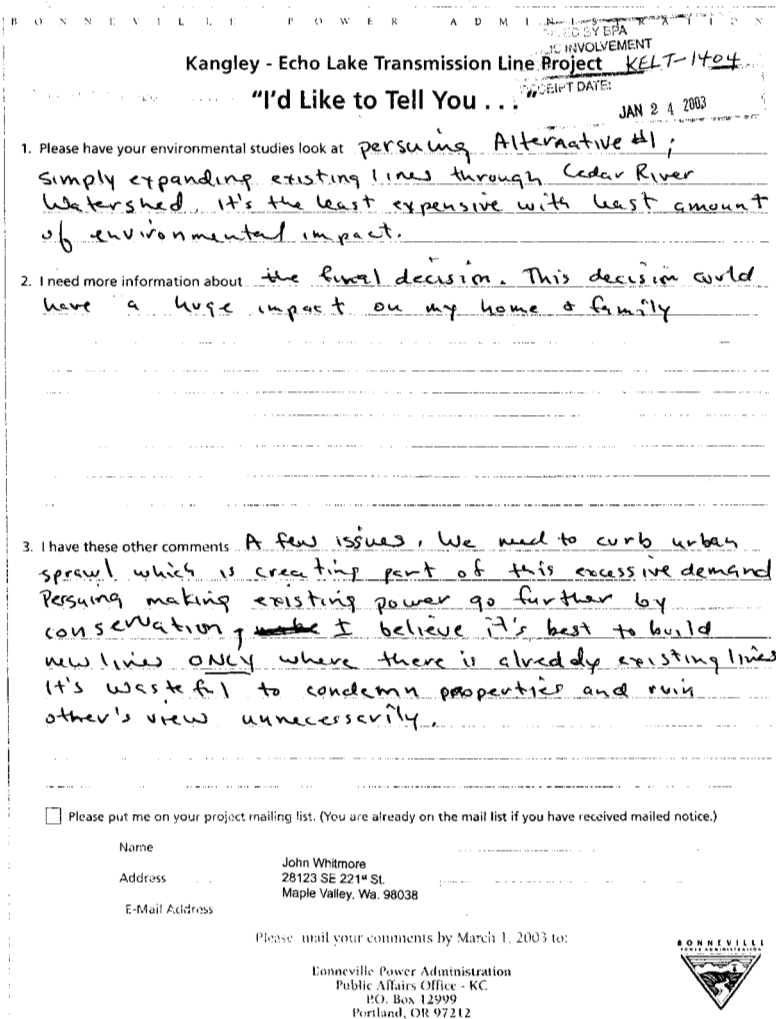 BONNEVILLE POWER ADMINISTRATION
BY BPA
INVOLVEMENT
Kangley - Echo Lake Transmission Line Project KELT-1404
RECEIPT DATE:
"I'd Like to Tell You . . . "
JAN 24 2003
1. Please have your environmental studies look at persuing Alternative #1;
simply expanding existing lines through Cedar River
Watershed. It's the least expensive with least amount
of environmental impact.
2. I need more information about the final decision. This decision could
have a huge impact on my home & family
3. I have these other comments A few issues, We need to curb urban
sprawl which is creating part of this excessive demand
Persuing making existing power go further by
conservation, I believe it's best to build
new lines ONLY where there is already existing lines
It's wasteful to condemn properties and ruin
other's view unnecessarily.
Please put me on your project mailing list. (You are already on the mail list if you have received mailed notice.)
Name
John Whitmore
Address 28123 SE 221st St.
Maple Valley, Wa. 98038
E-Mail Address
Please mail your comments by March 1, 2003 to:
Bonneville Power Administration
Public Affairs Office - KC
P.O. Box 12999
Portland, OR 97212
BONNEVILLE
POWER ADMINISTRATION